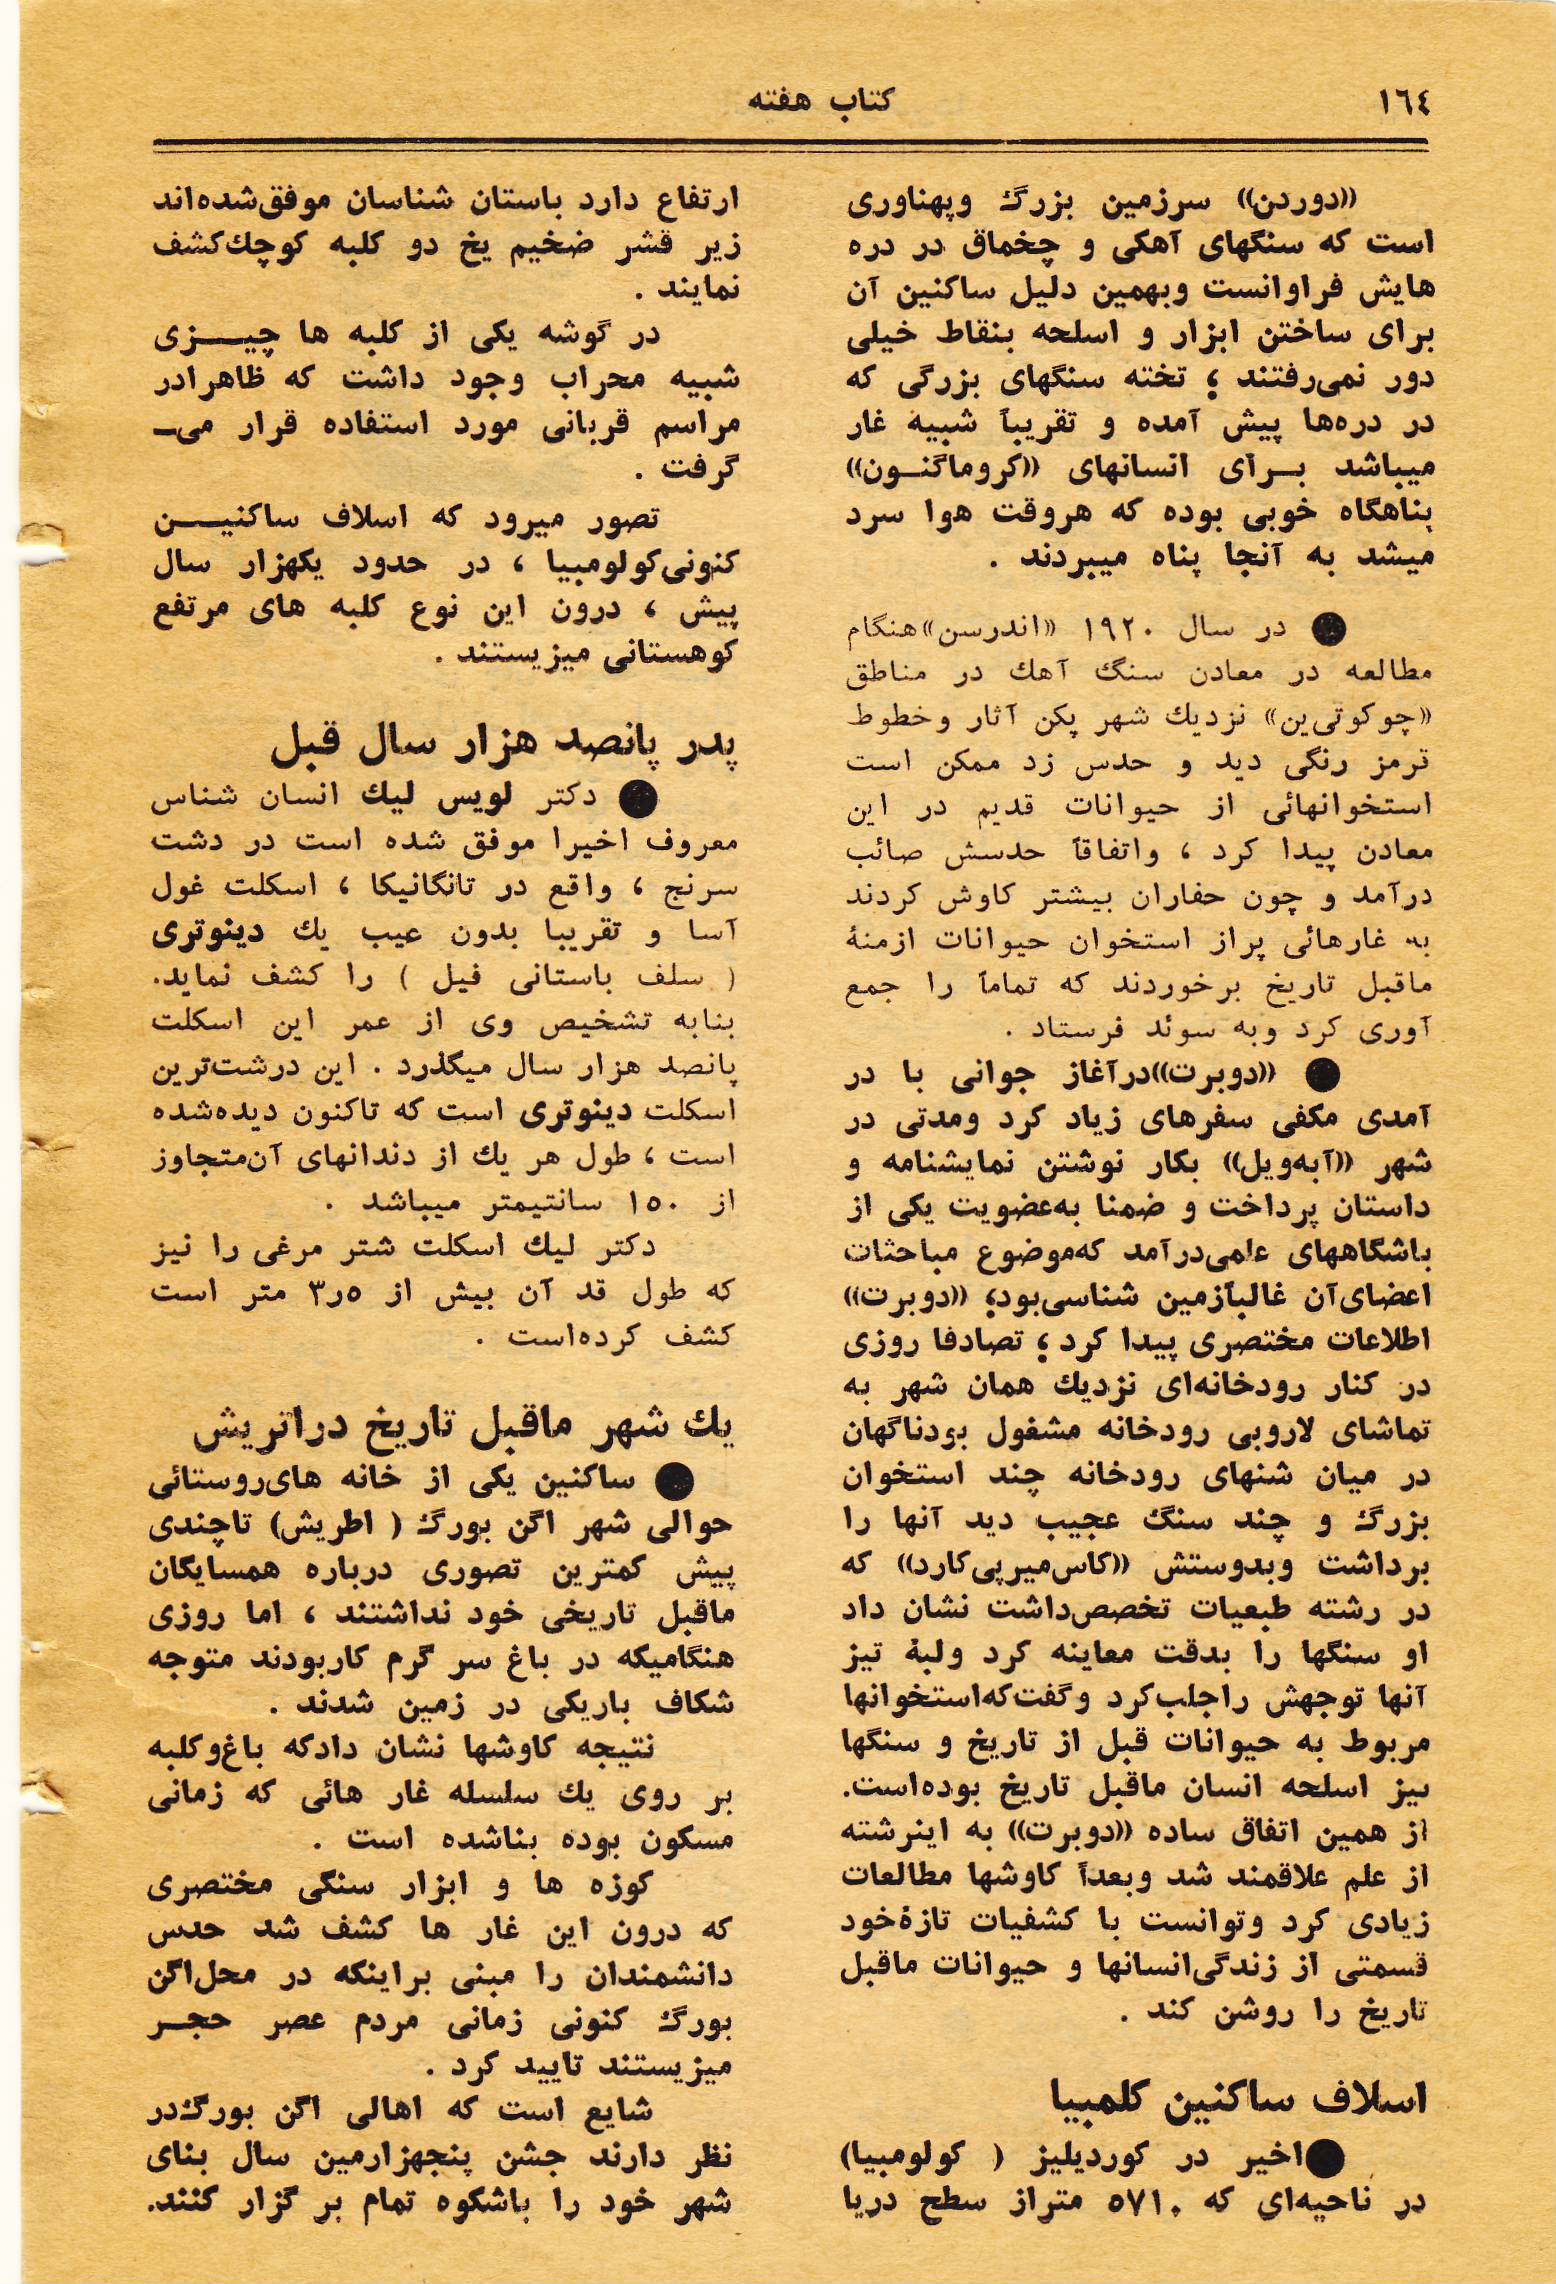 ١٦٤
کتاب هفته
((دوردن)) سرزمین بزرگ وپهناوری
است که سنگهای آهکی و چخماق در دره
هایش فراوانست وبهمین دلیل ساکنین آن
برای ساختن ابزار و اسلحه بنقاط خیلی
دور نمی‌رفتند ؛ تخته سنگهای بزرگی که
در دره‌ها پیش آمده و تقریباً شبیه غار
میباشد بــرای انسانهای ((کروماگنــون))
پناهگاه خوبی بوده که هروقت هوا سرد
میشد به آنجا پناه میبردند .
● در سال ۱۹۲۰ «اندرسن»هنگام
مطالعه در معادن سنگ آهك در مناطق
«چوکوتی‌ین» نزدیك شهر پکن آثار وخطوط
قرمز رنگی دید و حدس زد ممکن است
استخوانهائی از حیوانات قدیم در این
معادن پیدا کرد ، واتفاقاً حدسش صائب
درآمد و چون حفاران بیشتر کاوش کردند
به غارهائی پراز استخوان حیوانات ازمنهٔ
ماقبل تاریخ برخوردند که تماماً را جمع
آوری کرد وبه سوئد فرستاد .
● ((دوبرت))درآغاز جوانی با در
آمدی مکفی سفرهای زیاد کرد ومدتی در
شهر ((آبه‌ویل)) بکار نوشتن نمایشنامه و
داستان پرداخت و ضمنا به‌عضویت یکی از
باشگاههای علمی‌درآمد که‌موضوع مباحثات
اعضای‌آن غالباًزمین شناسی‌بود؛ ((دوبرت))
اطلاعات مختصری پیدا کرد ؛ تصادفا روزی
در کنار رودخانه‌ای نزدیك همان شهر به
تماشای لاروبی رودخانه مشغول بودناگهان
در میان شنهای رودخانه چند استخوان
بزرگ و چند سنگ عجیب دید آنها را
برداشت وبدوستش ((کاس‌میرپی‌کارد)) که
در رشته طبعیات تخصص‌داشت نشان داد
او سنگها را بدقت معاینه کرد ولبهٔ تیز
آنها توجهش راجلب‌کرد وگفت‌که‌استخوانها
مربوط به حیوانات قبل از تاریخ و سنگها
نیز اسلحه انسان ماقبل تاریخ بوده‌است.
از همین اتفاق ساده ((دوبرت)) به اینرشته
از علم علاقمند شد وبعداً کاوشها مطالعات
زیادی کرد وتوانست با کشفیات تازهٔ‌خود
قسمتی از زندگی‌انسانها و حیوانات ماقبل
تاریخ را روشن کند .
اسلاف ساکنین کلمبیا
●اخیر در کوردیلیز ( کولومبیا)
در ناحیه‌ای که ۵۷۱۰ متراز سطح دریا
ارتفاع دارد باستان شناسان موفق‌شده‌اند
زیر قشر ضخیم یخ دو کلبه کوچك‌کشف
نمایند .
در گوشه یکی از کلبه ها چیــزی
شبیه محراب وجود داشت که ظاهرادر
مراسم قربانی مورد استفاده قرار می‌ـ
گرفت .
تصور میرود که اسلاف ساکنیــن
کنونی‌کولومبیا ، در حدود یکهزار سال
پیش ، درون این نوع کلبه های مرتفع
کوهستانی میزیستند .
پدر پانصد هزار سال قبل
● دکتر لویس لیك انسان شناس
معروف اخیرا موفق شده است در دشت
سرنج ، واقع در تانگانیکا ، اسکلت غول
آسا و تقریبا بدون عیب یك دینوتری
( سلف باستانی فیل ) را کشف نماید.
بنابه تشخیص وی از عمر این اسکلت
پانصد هزار سال میگذرد . این درشت‌ترین
اسکلت دینوتری است که تاکنون دیده‌شده
است ، طول هر یك از دندانهای آن‌متجاوز
از ۱۵۰ سانتیمتر میباشد .
دکتر لیك اسکلت شتر مرغی را نیز
که طول قد آن بیش از ۳ر۵ متر است
کشف کرده‌است .
یك شهر ماقبل تاریخ دراتریش
● ساکنین یکی از خانه های‌روستائی
حوالی شهر اگن بورگ ( اطریش) تاچندی
پیش کمترین تصوری درباره همسایگان
ماقبل تاریخی خود نداشتند ، اما روزی
هنگامیکه در باغ سر گرم کاربودند متوجه
شکاف باریکی در زمین شدند .
نتیجه کاوشها نشان دادکه باغ‌وکلبه
بر روی یك سلسله غار هائی که زمانی
مسکون بوده بناشده است .
کوزه ها و ابزار سنگی مختصری
که درون این غار ها کشف شد حدس
دانشمندان را مبنی براینکه در محل‌اگن
بورگ کنونی زمانی مردم عصر حجــر
میزیستند تایید کرد .
شایع است که اهالی اگن بورگ‌در
نظر دارند جشن پنجهزارمین سال بنای
شهر خود را باشکوه تمام بر گزار کنند.